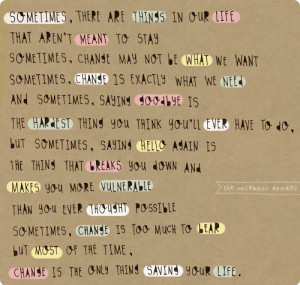 SOMETIMES, THERE ARE THINGS IN OUR LIFE
THAT AREN'T MEANT TO STAY
SOMETIMES, CHANGE MAY NOT BE WHAT WE WANT
SOMETIMES, CHANGE IS EXACTLY WHAT WE NEED
AND SOMETIMES, SAYING goodbye IS
THE HARDEST THING YOU THINK YOU'LL EVER HAVE TO DO,
BUT SOMETIMES, SAYING HELLO AGAIN IS
THE THING THAT BREAKS YOU DOWN AND
MAKES YOU MORE VULNERABLE
THAN YOU EVER THOUGHT POSSIBLE
SOMETIMES, CHANGE IS TOO MUCH TO BEAR
BUT MOST OF THE TIME,
CHANGE IS THE ONLY THING SAVING YOUR LIFE.